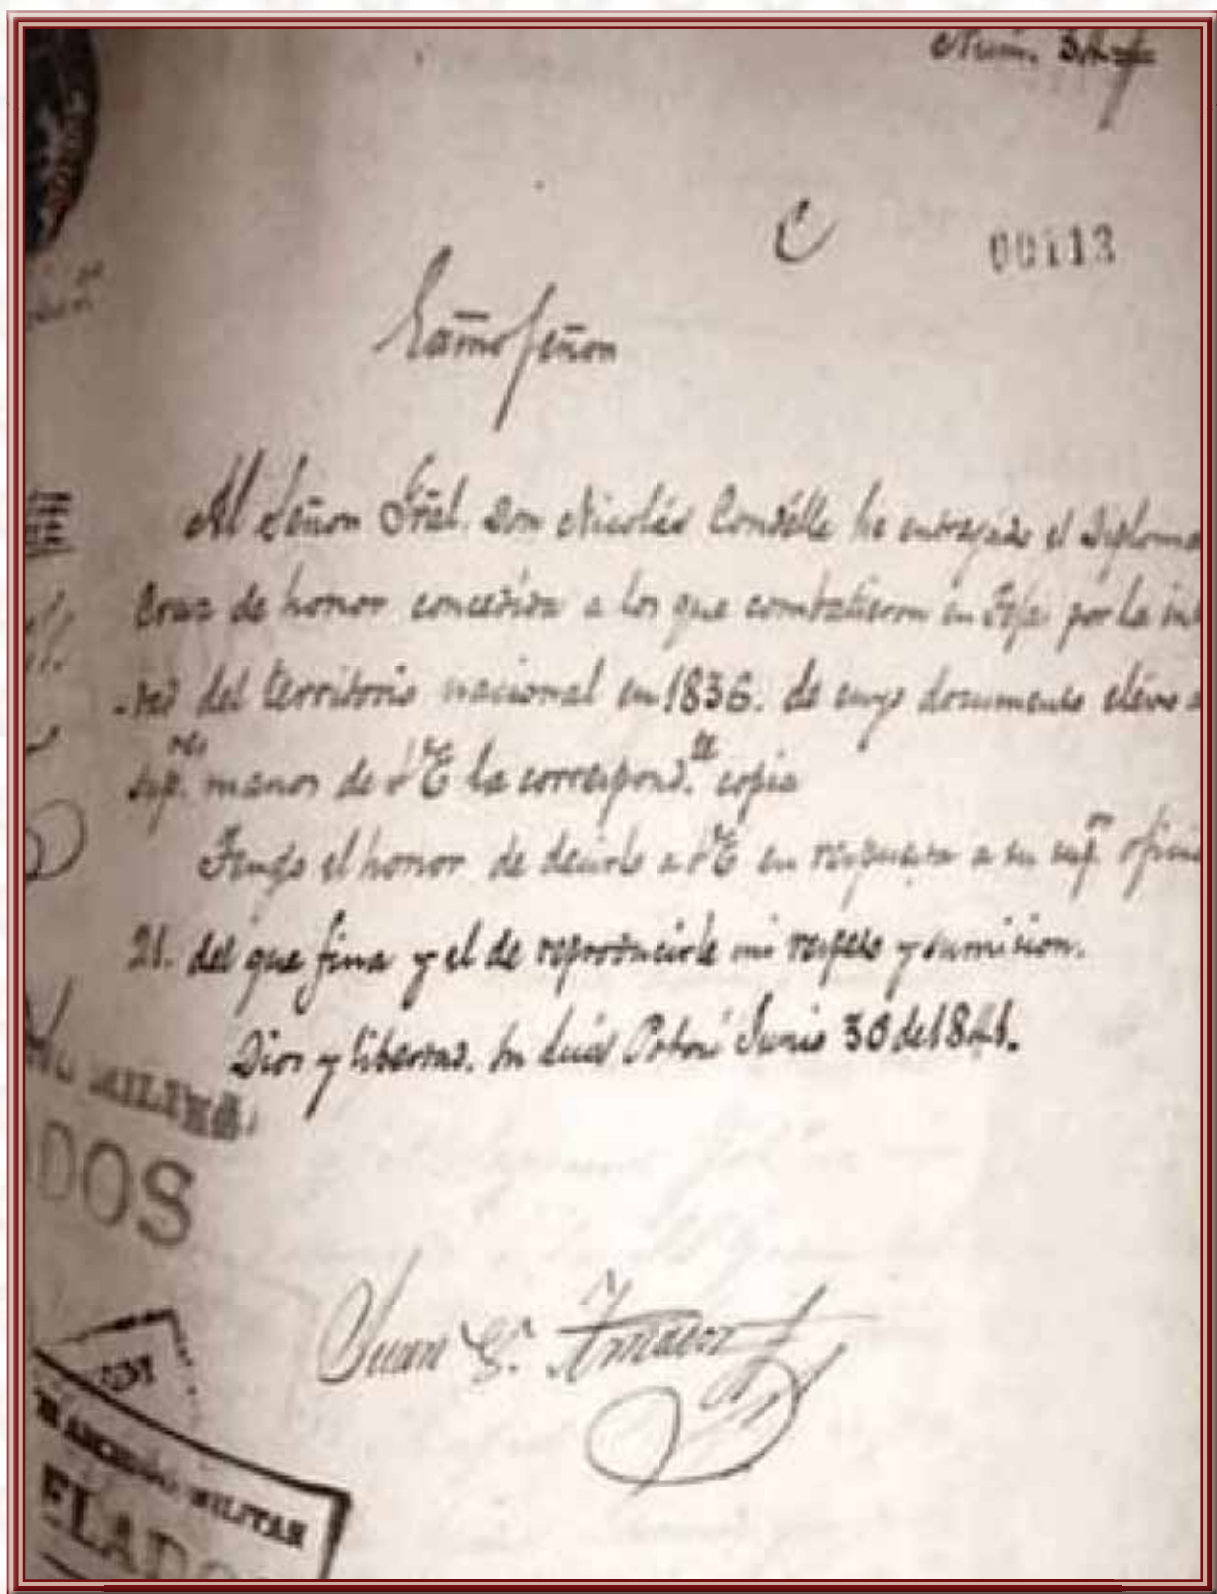 Núm.
C
00113
Exmo Señor
Al Señor Gral. Don Nicolás Condelle he entregado el Diploma
Cruz de honor concedida a los que combatieron en Tejas por la in
-dad del territorio nacional en 1836. de cuyo documento elevo a
sup.res manos de V E la correspond.te copia
Tengo el honor de decirlo a V E en respuesta a su sup.or oficio
21. del que fina y el de reproducirle mi respeto y sumision.
Dios y libertad. Sn Luis Potosí Junio 30 de 1841.
MILITAR
DOS
Juan
ARCHIVO MILITAR
ELADO